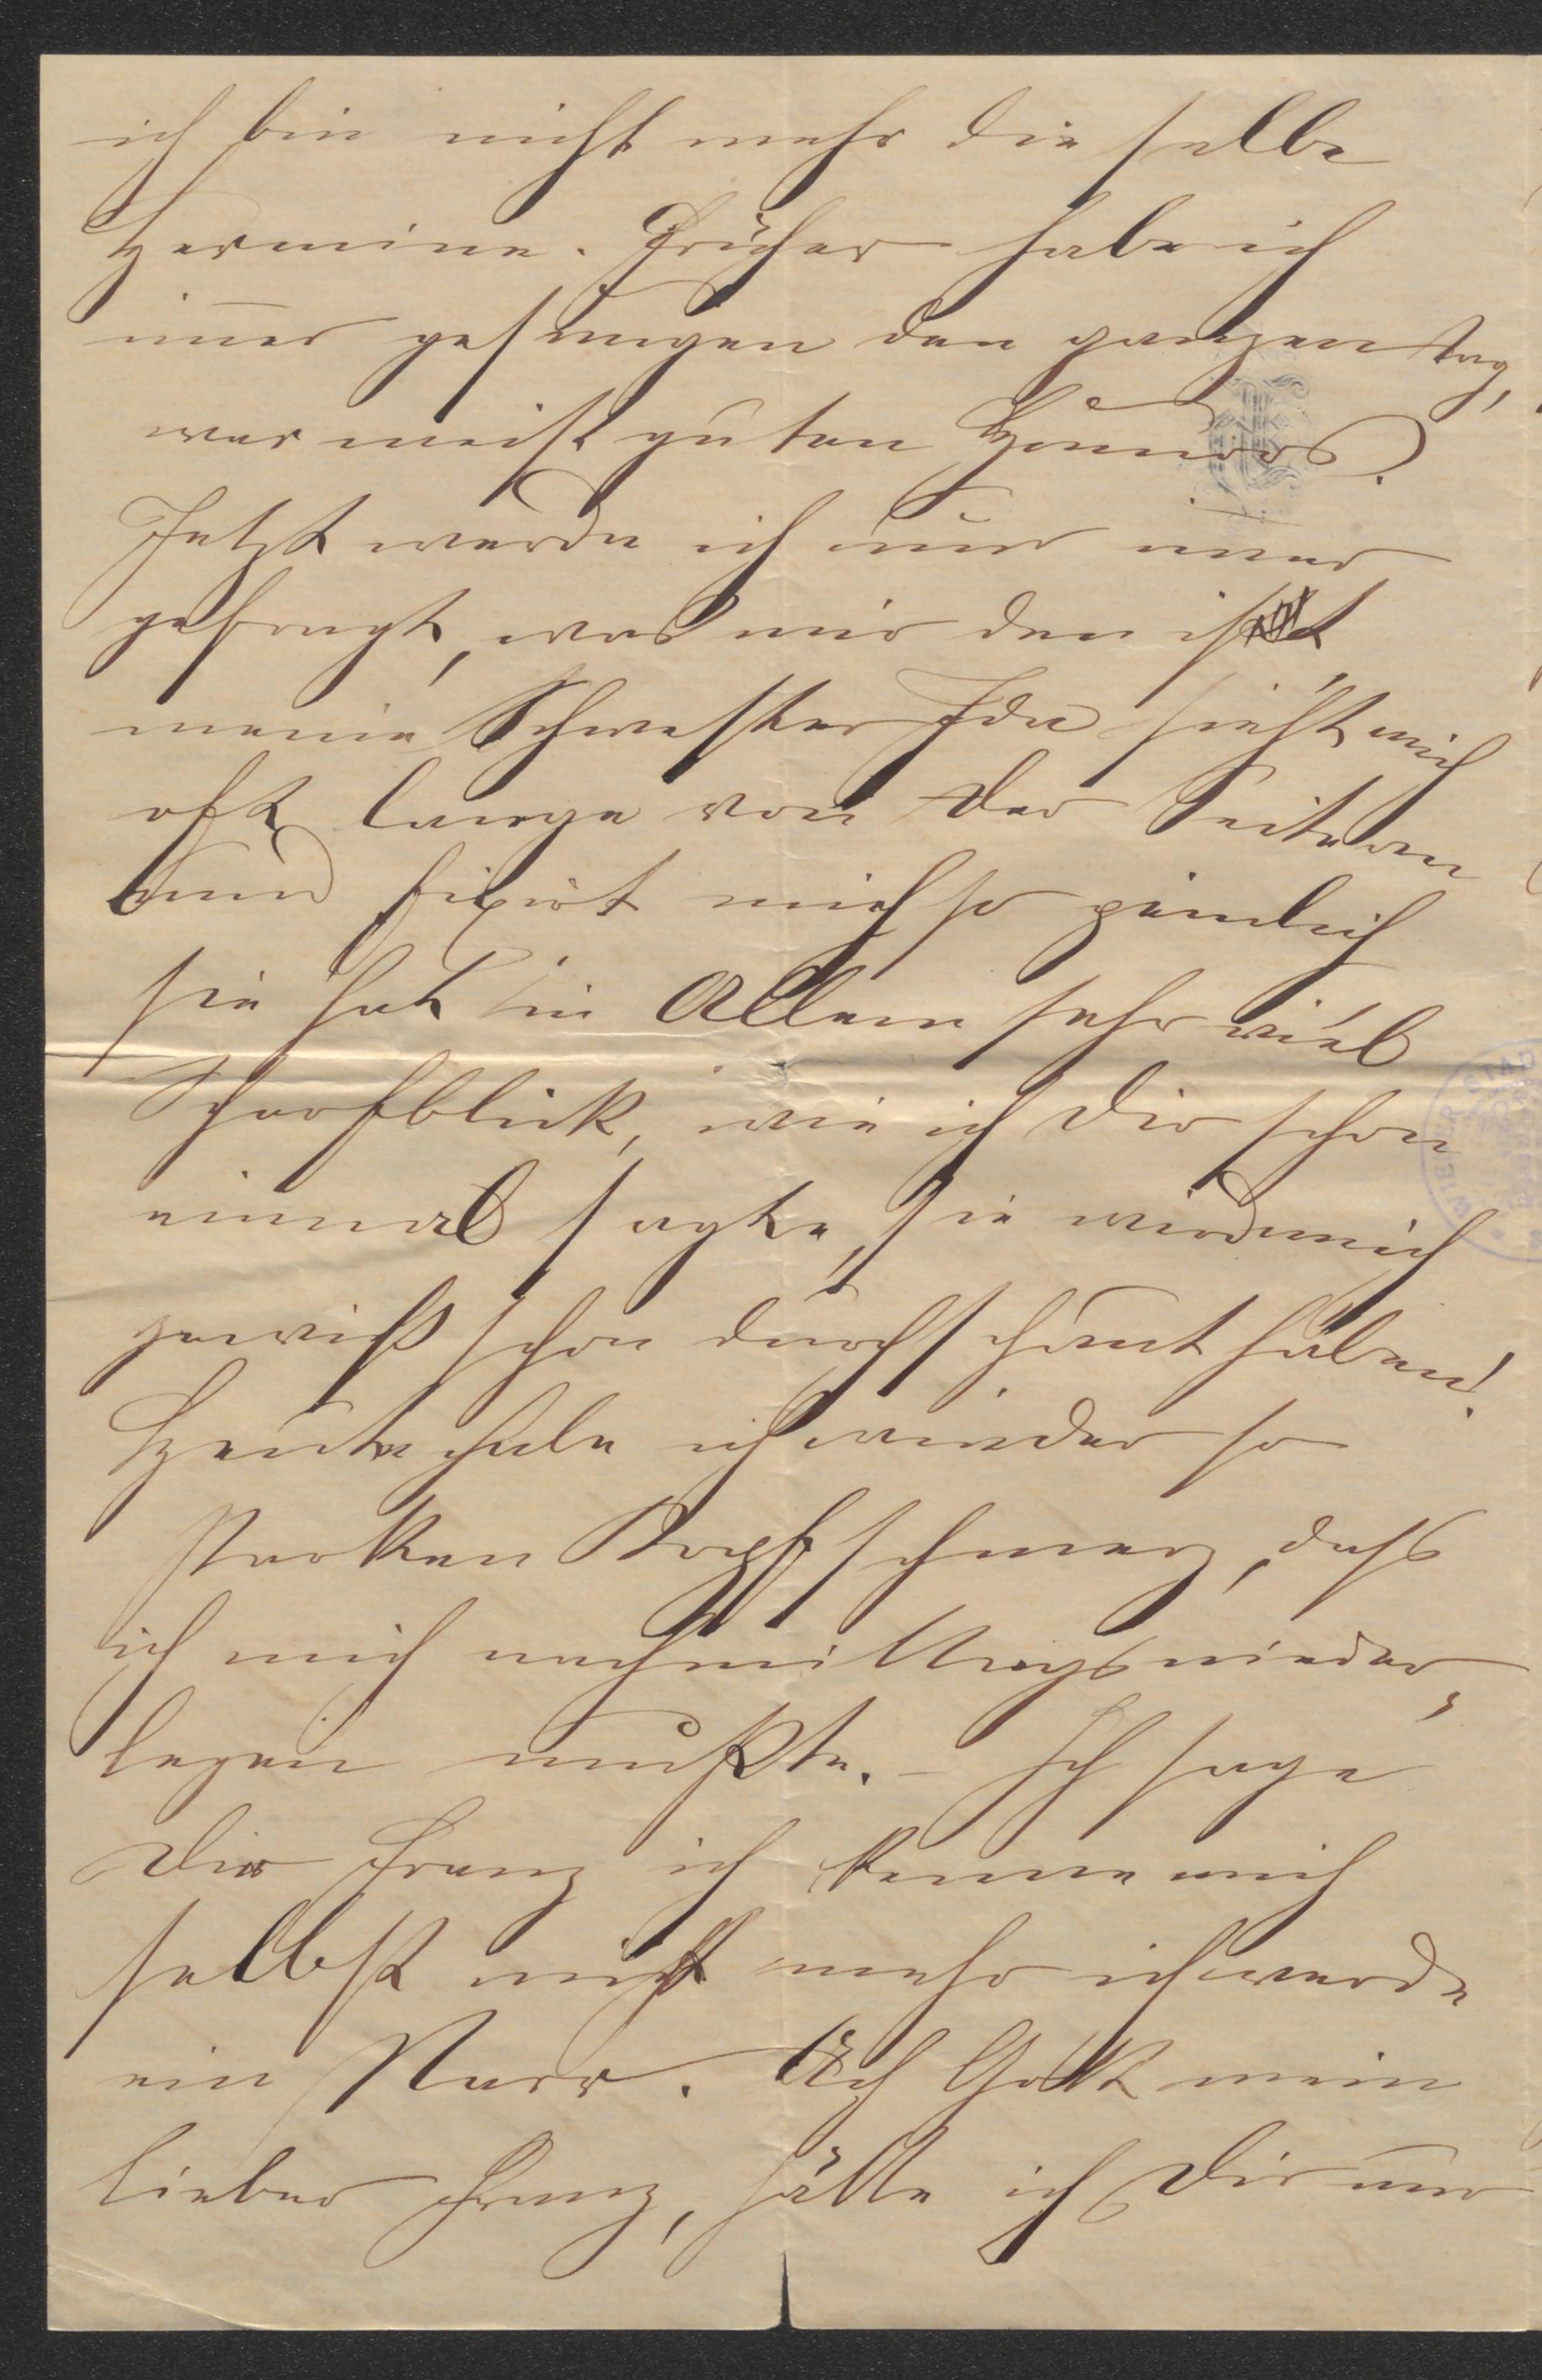 ich bin nicht mehr die selbe
Hermine. Früher habe ich
im̄er gesungen den ganzen Tag,
war meist guten Humors.
Jetzt werde ich nur im̄er
gefragt, was mir den ist
meine Schwester Ida sieht mich
oft lange von der Seite an
und fixirt mich so ziemlich
sie hat in Allem sehr viel
Scharfblick, wie ich Dir schon
einmal sagte, sie wird mich
gewiß schon durchschaut haben!
Heute habe ich wieder so
starken Kopfschmerz, dass
ich mich nachmittags nieder
legen mußte. – Ich sage
Dir Franz ich kenne mich
selbst nicht mehr ich werde
ein Narr. Ach Gott mein
lieber Franz, hätte ich Dir nur
WIENER STAD